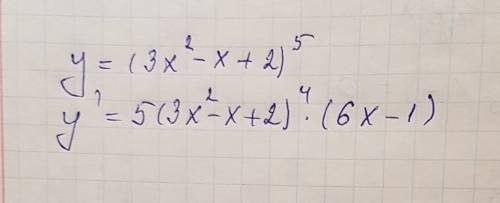 y = (3x² - x + 2)⁵
y' = 5(3x² - x + 2)⁴ · (6x - 1)